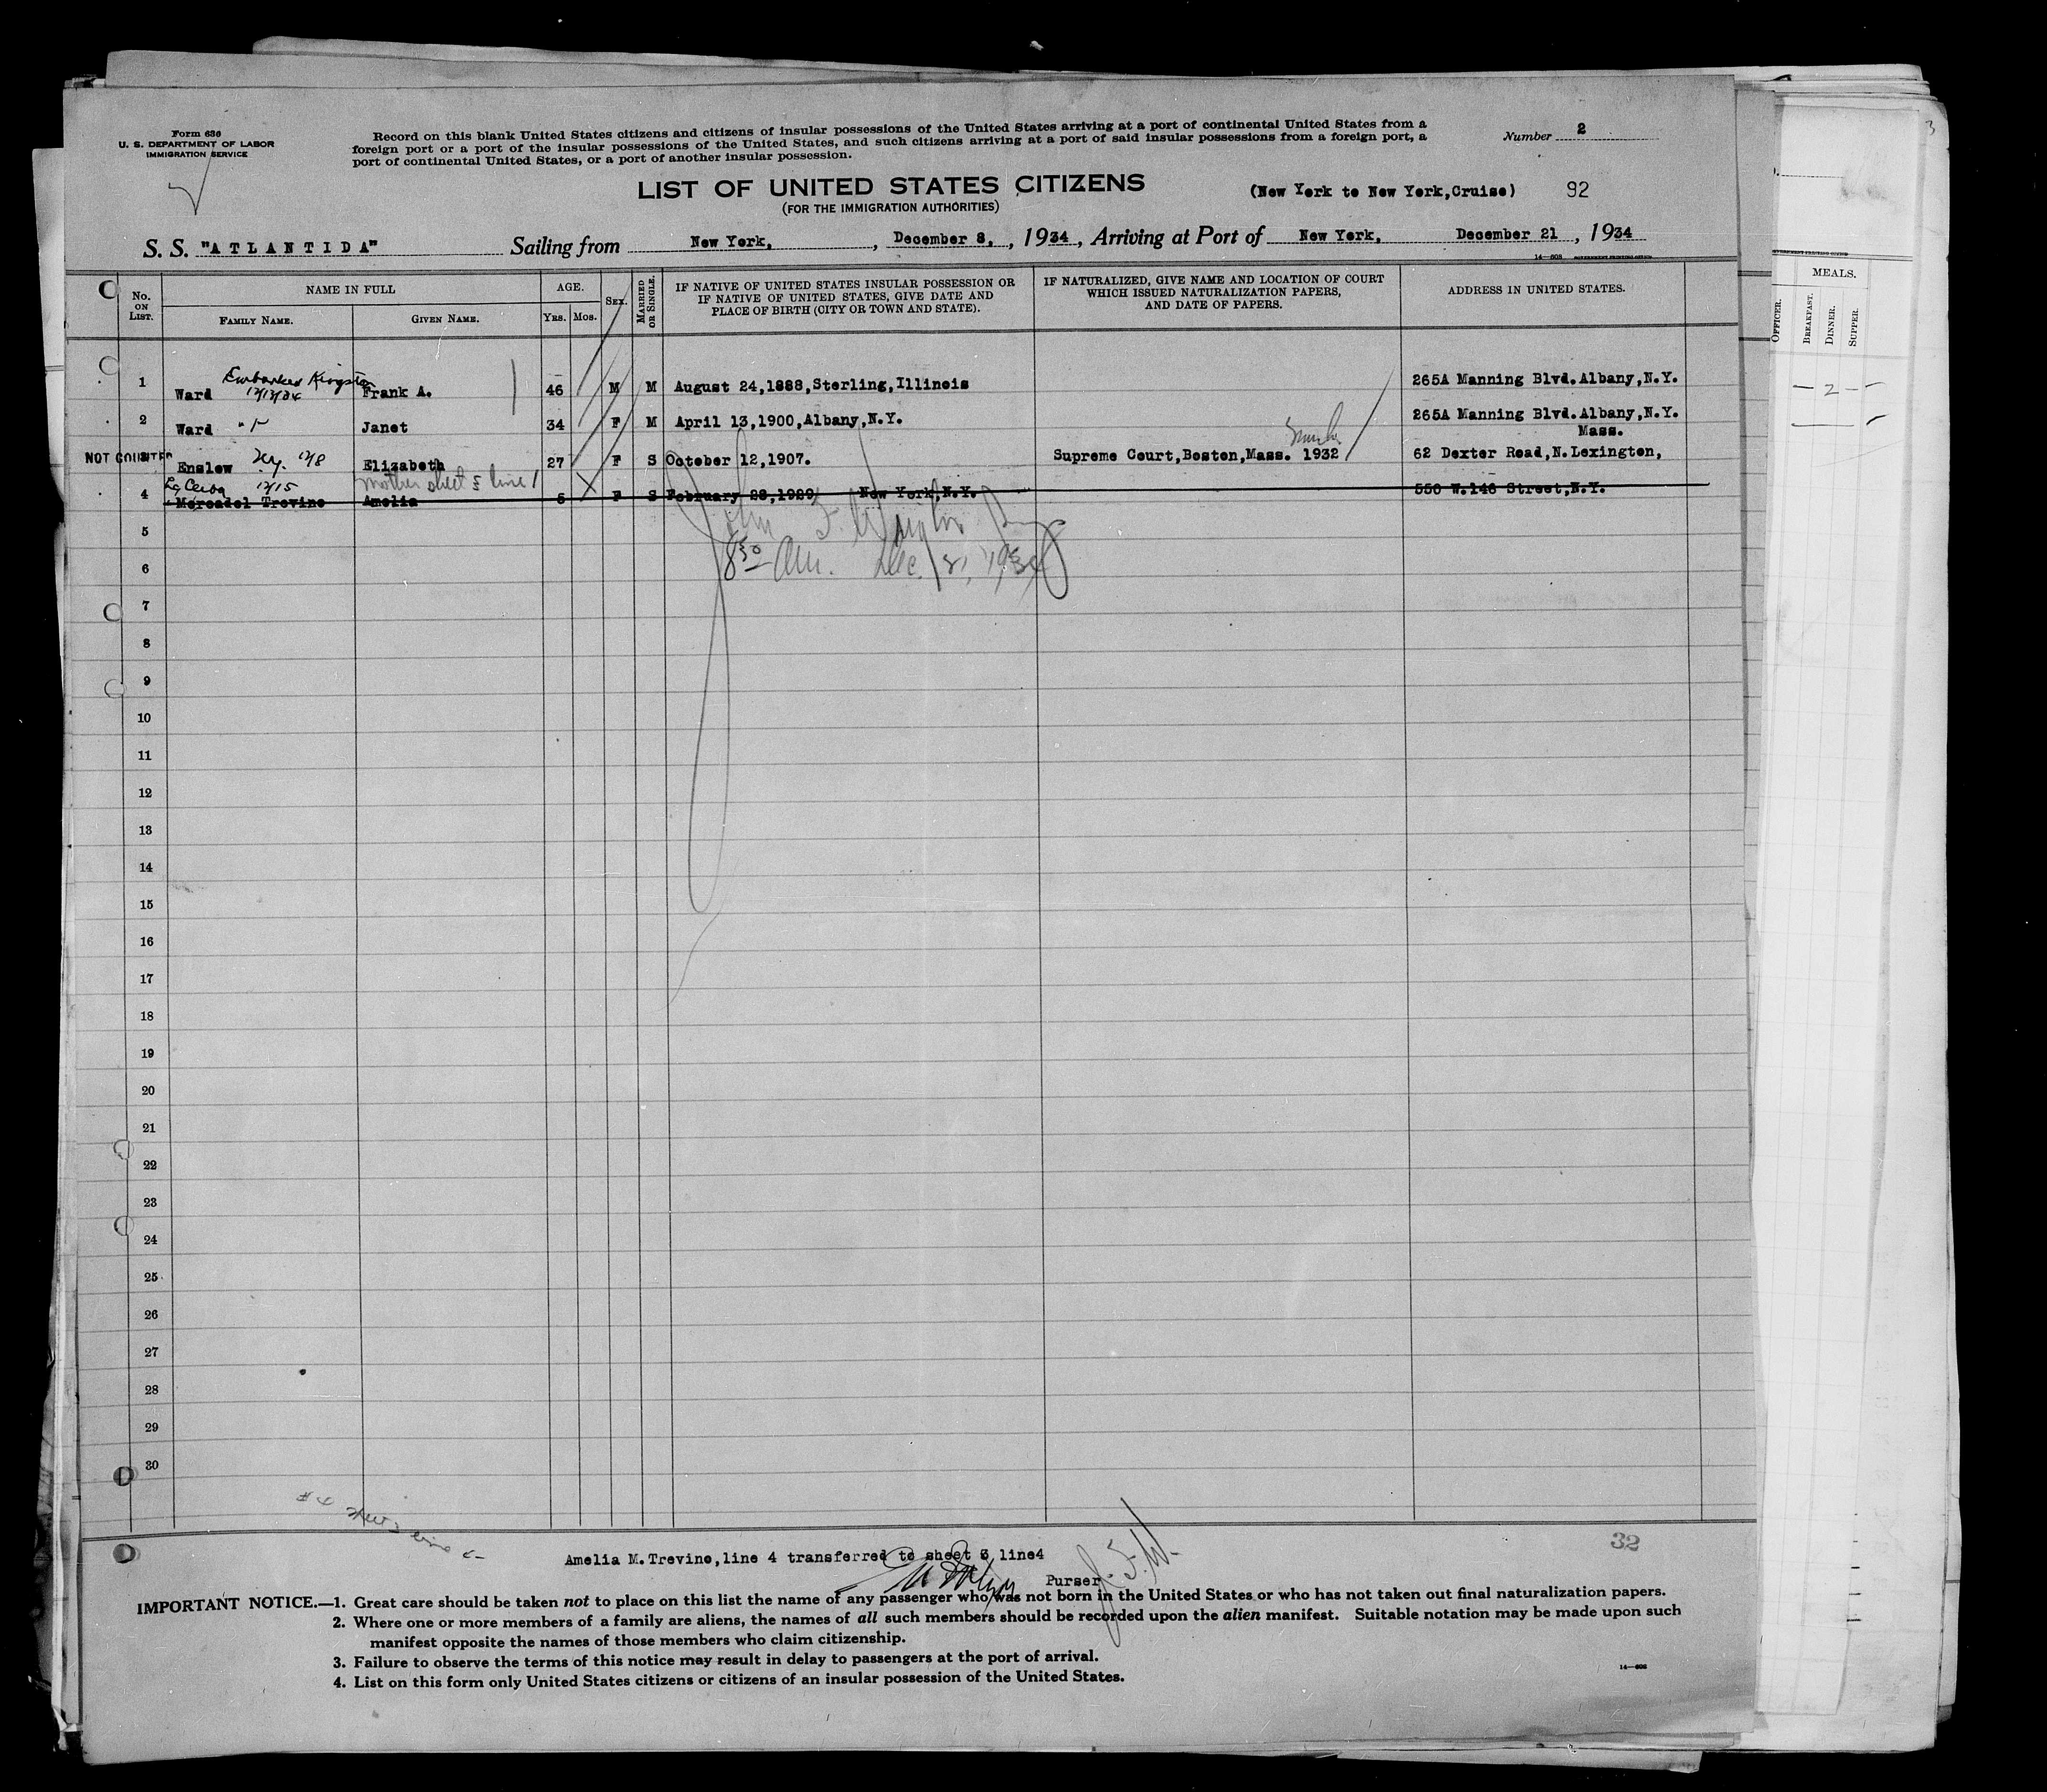 Form 630
U. S. DEPARTMENT OF LABOR
IMMIGRATION SERVICE
Record on this blank United States citizens and citizens of insular possessions of the United States arriving at a port of continental United States from a
foreign port or a port of the insular possessions of the United States, and such citizens arriving at a port of said insular possessions from a foreign port, a
port of continental United States, or a port of another insular possession.
Number 2
LIST OF UNITED STATES CITIZENS
(New York to New York,Cruise) 92
(FOR THE IMMIGRATION AUTHORITIES)
S. S. "ATLANTIDA" Sailing from New York, , December 8, , 1934, Arriving at Port of New York, December 21 , 1934
14—608 GOVERNMENT PRINTING OFFICE
No. ON LIST.
NAME IN FULL
FAMILY NAME.
GIVEN NAME.
AGE.
YRS. MOS.
SEX.
MARRIED OR SINGLE.
IF NATIVE OF UNITED STATES INSULAR POSSESSION OR
IF NATIVE OF UNITED STATES, GIVE DATE AND
PLACE OF BIRTH (CITY OR TOWN AND STATE).
IF NATURALIZED, GIVE NAME AND LOCATION OF COURT
WHICH ISSUED NATURALIZATION PAPERS,
AND DATE OF PAPERS.
ADDRESS IN UNITED STATES.
Embarked Kingston
12/13/34
1 Ward Frank A. 46 M M August 24,1888,Sterling,Illinois 265A Manning Blvd.Albany,N.Y.
2 Ward Janet 34 F M April 13,1900,Albany,N.Y. 265A Manning Blvd.Albany,N.Y.
Mass.
NOT COUNTED Enslow N.Y. 12/8 Elizabeth 27 F S October 12,1907. Supreme Court,Boston,Mass. 1932 62 Dexter Road,N.Lexington,
La Ceiba 12/15 Mother sheet 5 line 1
4 Mercadel Trevino Amelia 5 F S February 28,1929 New York,N.Y. 550 W.146 Street,N.Y.
5
8 30 AM. Dec. 21, 1934
6
7
8
9
10
11
12
13
14
15
16
17
18
19
20
21
22
23
24
25
26
27
28
29
30
32
Amelia M.Trevino,line 4 transferred to sheet 3 line4
Purser
J. F. W.
IMPORTANT NOTICE.—1. Great care should be taken not to place on this list the name of any passenger who was not born in the United States or who has not taken out final naturalization papers.
2. Where one or more members of a family are aliens, the names of all such members should be recorded upon the alien manifest. Suitable notation may be made upon such
manifest opposite the names of those members who claim citizenship.
3. Failure to observe the terms of this notice may result in delay to passengers at the port of arrival.
4. List on this form only United States citizens or citizens of an insular possession of the United States.
14—608
3
MEALS.
OFFICER.
BREAKFAST.
DINNER.
SUPPER.
2